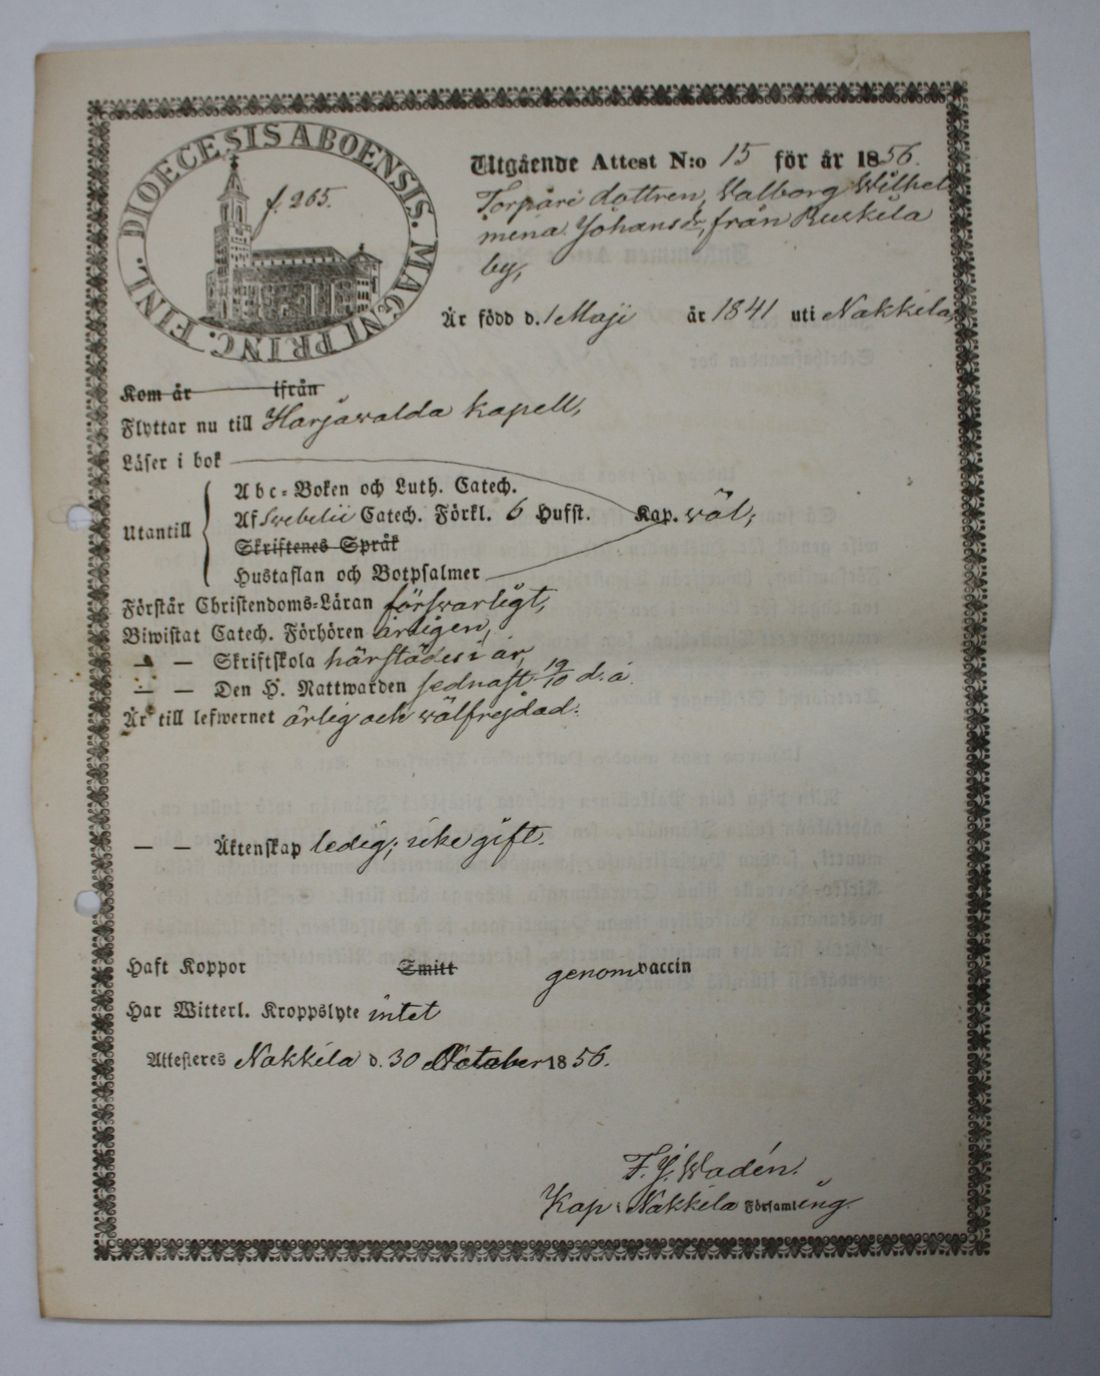 DIOECESIS ABOENSIS. MAGNI PRINC. FINL.
f. 265.
Utgående Attest N:o 15 för år 1856.
Torpare dottren, Walborg Wilhel
mina Johansdr, från Ruskila
by,
Är född d. 1 Maji år 1841 uti Nakkila,
Kom år ifrån
Flyttar nu till Harjawalda kapell,
Läser i bok
Utantill
Abc-Boken och Luth. Catech.
Af Swebelii Catech. Förkl. 6 Hufst. Kap. wäl;
Skriftenes Språk
Hustaflan och Botpsalmer
Förstår Christendoms-Läran förswarligt,
Biwistat Catech. Förhören årligen,
— — Skriftskola härstädes i år,
— — Den H. Nattwarden sednast 19/10 d. å.
Är till lefwernet ärlig och wälfrejdad.
— — Äktenskap ledig; icke gift.
Haft Koppor Smitt genom vaccin
Har Witterl. Kroppslyte intet
Attesteres Nakkila d. 30 October 1856.
F. J. Wadén.
Kap i Nakkila Församling